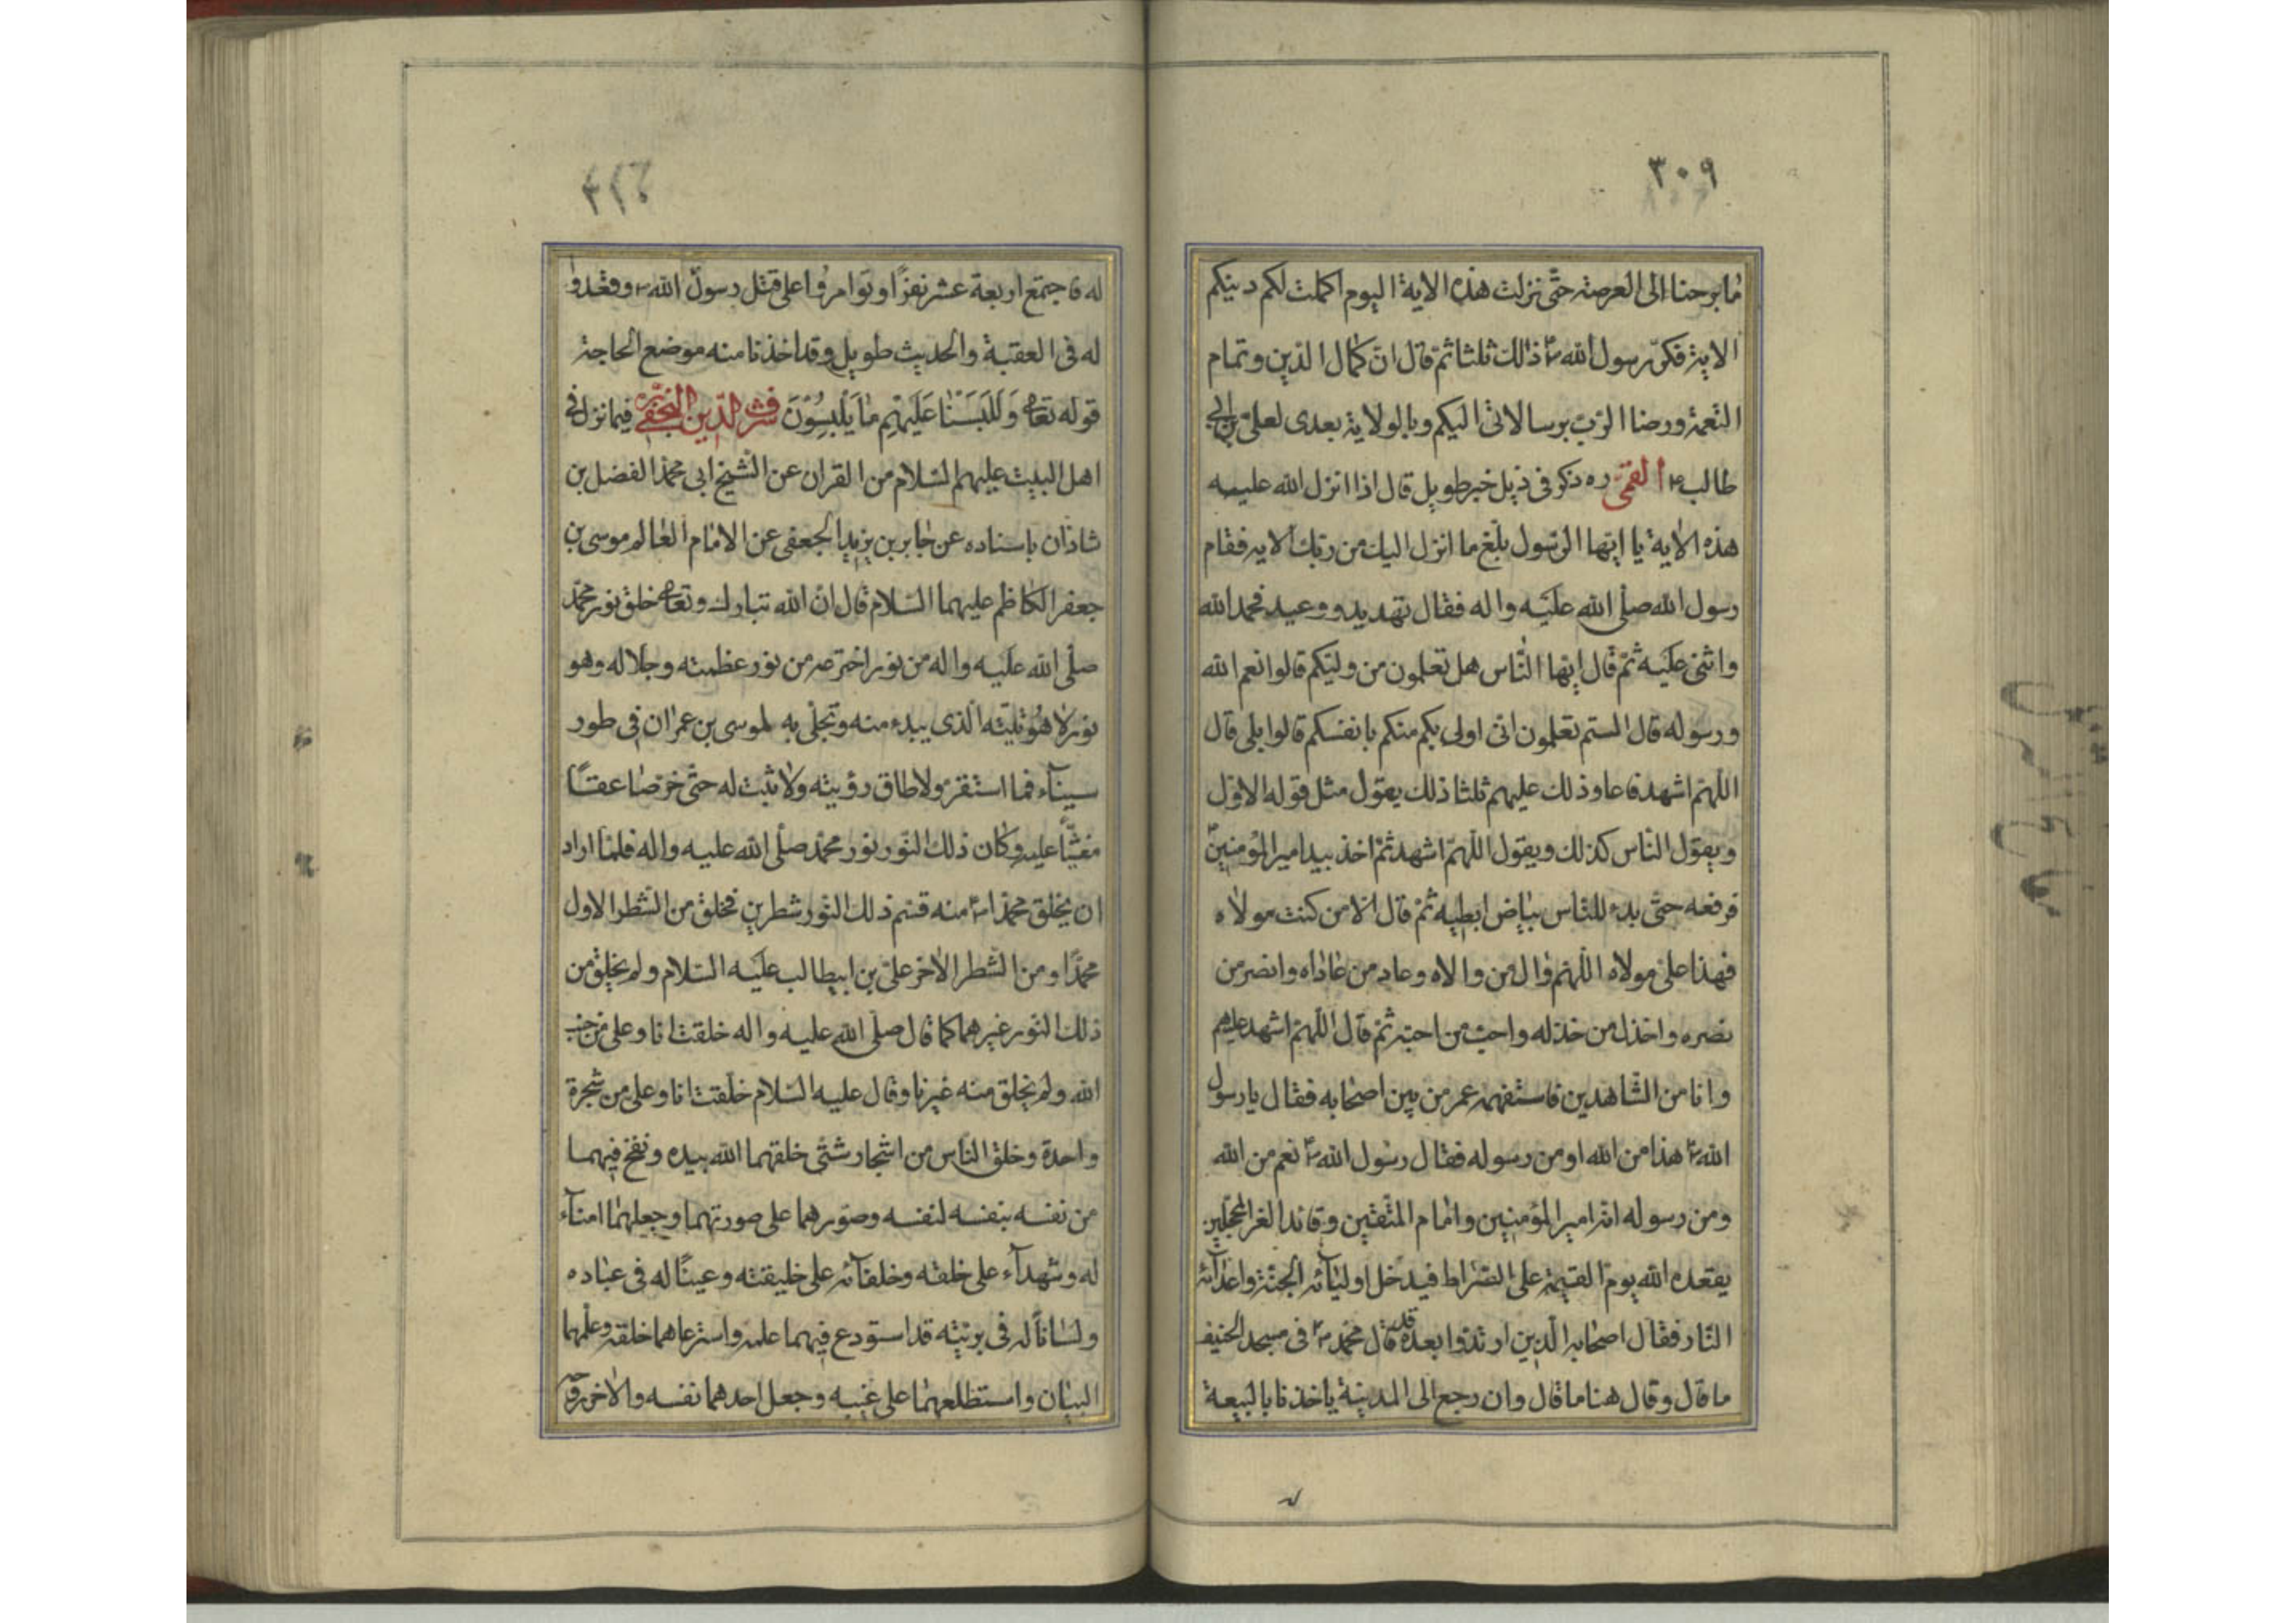 ٣٠٩
ما برحنا الى العرصة حتى نزلت هذه الاية اليوم اكملت لكم دينكم
الاية فكرّر رسول الله ص ذالك ثلثا ثمّ قال انّ كمال الدّين وتمام
النّعمة ورضا الرّب برسالاتى اليكم وبالولاية بعدى لعلىّ بن ابي
طالب ع القمّى ره ذكر فى ذيل خبر طويل قال اذا انزل الله عليه
هذه الاية يا ايّها الرّسول بلّغ ما انزل اليك من ربّك الايه فقام
رسول الله صلّى الله عليه واله فقال تهديد ووعيد فحمد الله
واثنى عليه ثمّ قال ايّها النّاس هل تعلمون من وليّكم قالوا نعم الله
ورسوله قال الستم تعلمون انّى اولى بكم منكم بانفسكم قالوا بلى قال
اللّهمّ اشهد فاعاد ذلك عليهم ثلثا ذلك يقول مثل قوله الاوّل
ويقول النّاس كذلك ويقول اللّهمّ اشهد ثمّ اخذ بيد امير المؤمنين ع
فرفعه حتّى بدء للنّاس بياض ابطيه ثمّ قال الا من كنت مولاه
فهذا علىّ مولاه اللّهمّ وال من والاه وعاد من عاداه وانصر من
نصره واخذل من خذله واحبّ من احبّه ثمّ قال اللّهمّ اشهد عليهم
وانا من الشّاهدين فاستفهمه عمر من بين اصحابه فقال يا رسول
الله ص هذا من الله او من رسوله فقال رسول الله ص نعم من الله
ومن رسوله انّه امير المؤمنين وامام المتّقين وقائد الغر المحجّلين
يقعده الله يوم القيمة على الصّراط فيدخل اوليآئه الجنّة واعدآئه
النّار فقال اصحابه الّذين ارتدّوا بعده قد قال محمّد ص فى مسجد الخيف
ما قال وقال هنا ما قال وان رجع الى المدينة ياخذنا بالبيعة
له فاجتمع اربعة عشر نفرًا وتوامروا على قتل رسول الله ص وقعدوا
له فى العقبة والحديث طويل وقد اخذنا منه موضع الحاجة
قوله تعالى وَلَلَبَسْنا عَلَيْهِم مٰا يَلْبِسُوْنَ شرف الدّين النّجفى فيما نزل فى
اهل البيت عليهم السّلام من القران عن الشّيخ ابى محمّد الفضل بن
شاذان باسناده عن جابر بن يزيد الجعفى عن الامام العالم موسى بن
جعفر الكاظم عليهما السّلام قال انّ الله تبارك وتعالى خلق نور محمّد
صلّى الله عليه واله من نور اخترعه من نور عظمته وجلاله وهو
نور لاهوتيّته الّذى يبدء منه وتجلّى به لموسى بن عمران فى طور
سيناء فما استقرّ ولا طاق رؤيته ولا ثبت له حتّى خرّ صاعقًا
مغشيًّا عليه وكان ذلك النّور نور محمّد صلّى الله عليه واله فلمّا اراد
ان يخلق محمّدا ص منه قسم ذلك النّور شطرين فخلق من الشّطر الاول
محمّدًا ومن الشّطر الاخر علىّ بن ابيطالب عليه السّلام ولم يخلق من
ذلك النّور غيرهما كما قال صلّى الله عليه واله خلقت انا وعلى من جنب
الله ولم يخلق منه غيرنا وقال عليه السّلام خلقت انا وعلى من شجرة
واحدة وخلق النّاس من اشجار شتّى خلقهما الله بيده ونفخ فيهما
من نفسه بنفسه لنفسه وصوّرهما على صورتهما وجعلهما امنآء
له وشهدآء على خلقه وخلفآئه على خليقته وعينًا له فى عباده
ولسانًا له فى بريّته قد استودع فيهما علمه واسترعاهما خلقه وعلّمهما
البيان واستطلعهما على غيبه وجعل احدهما نفسه والاخر روحه